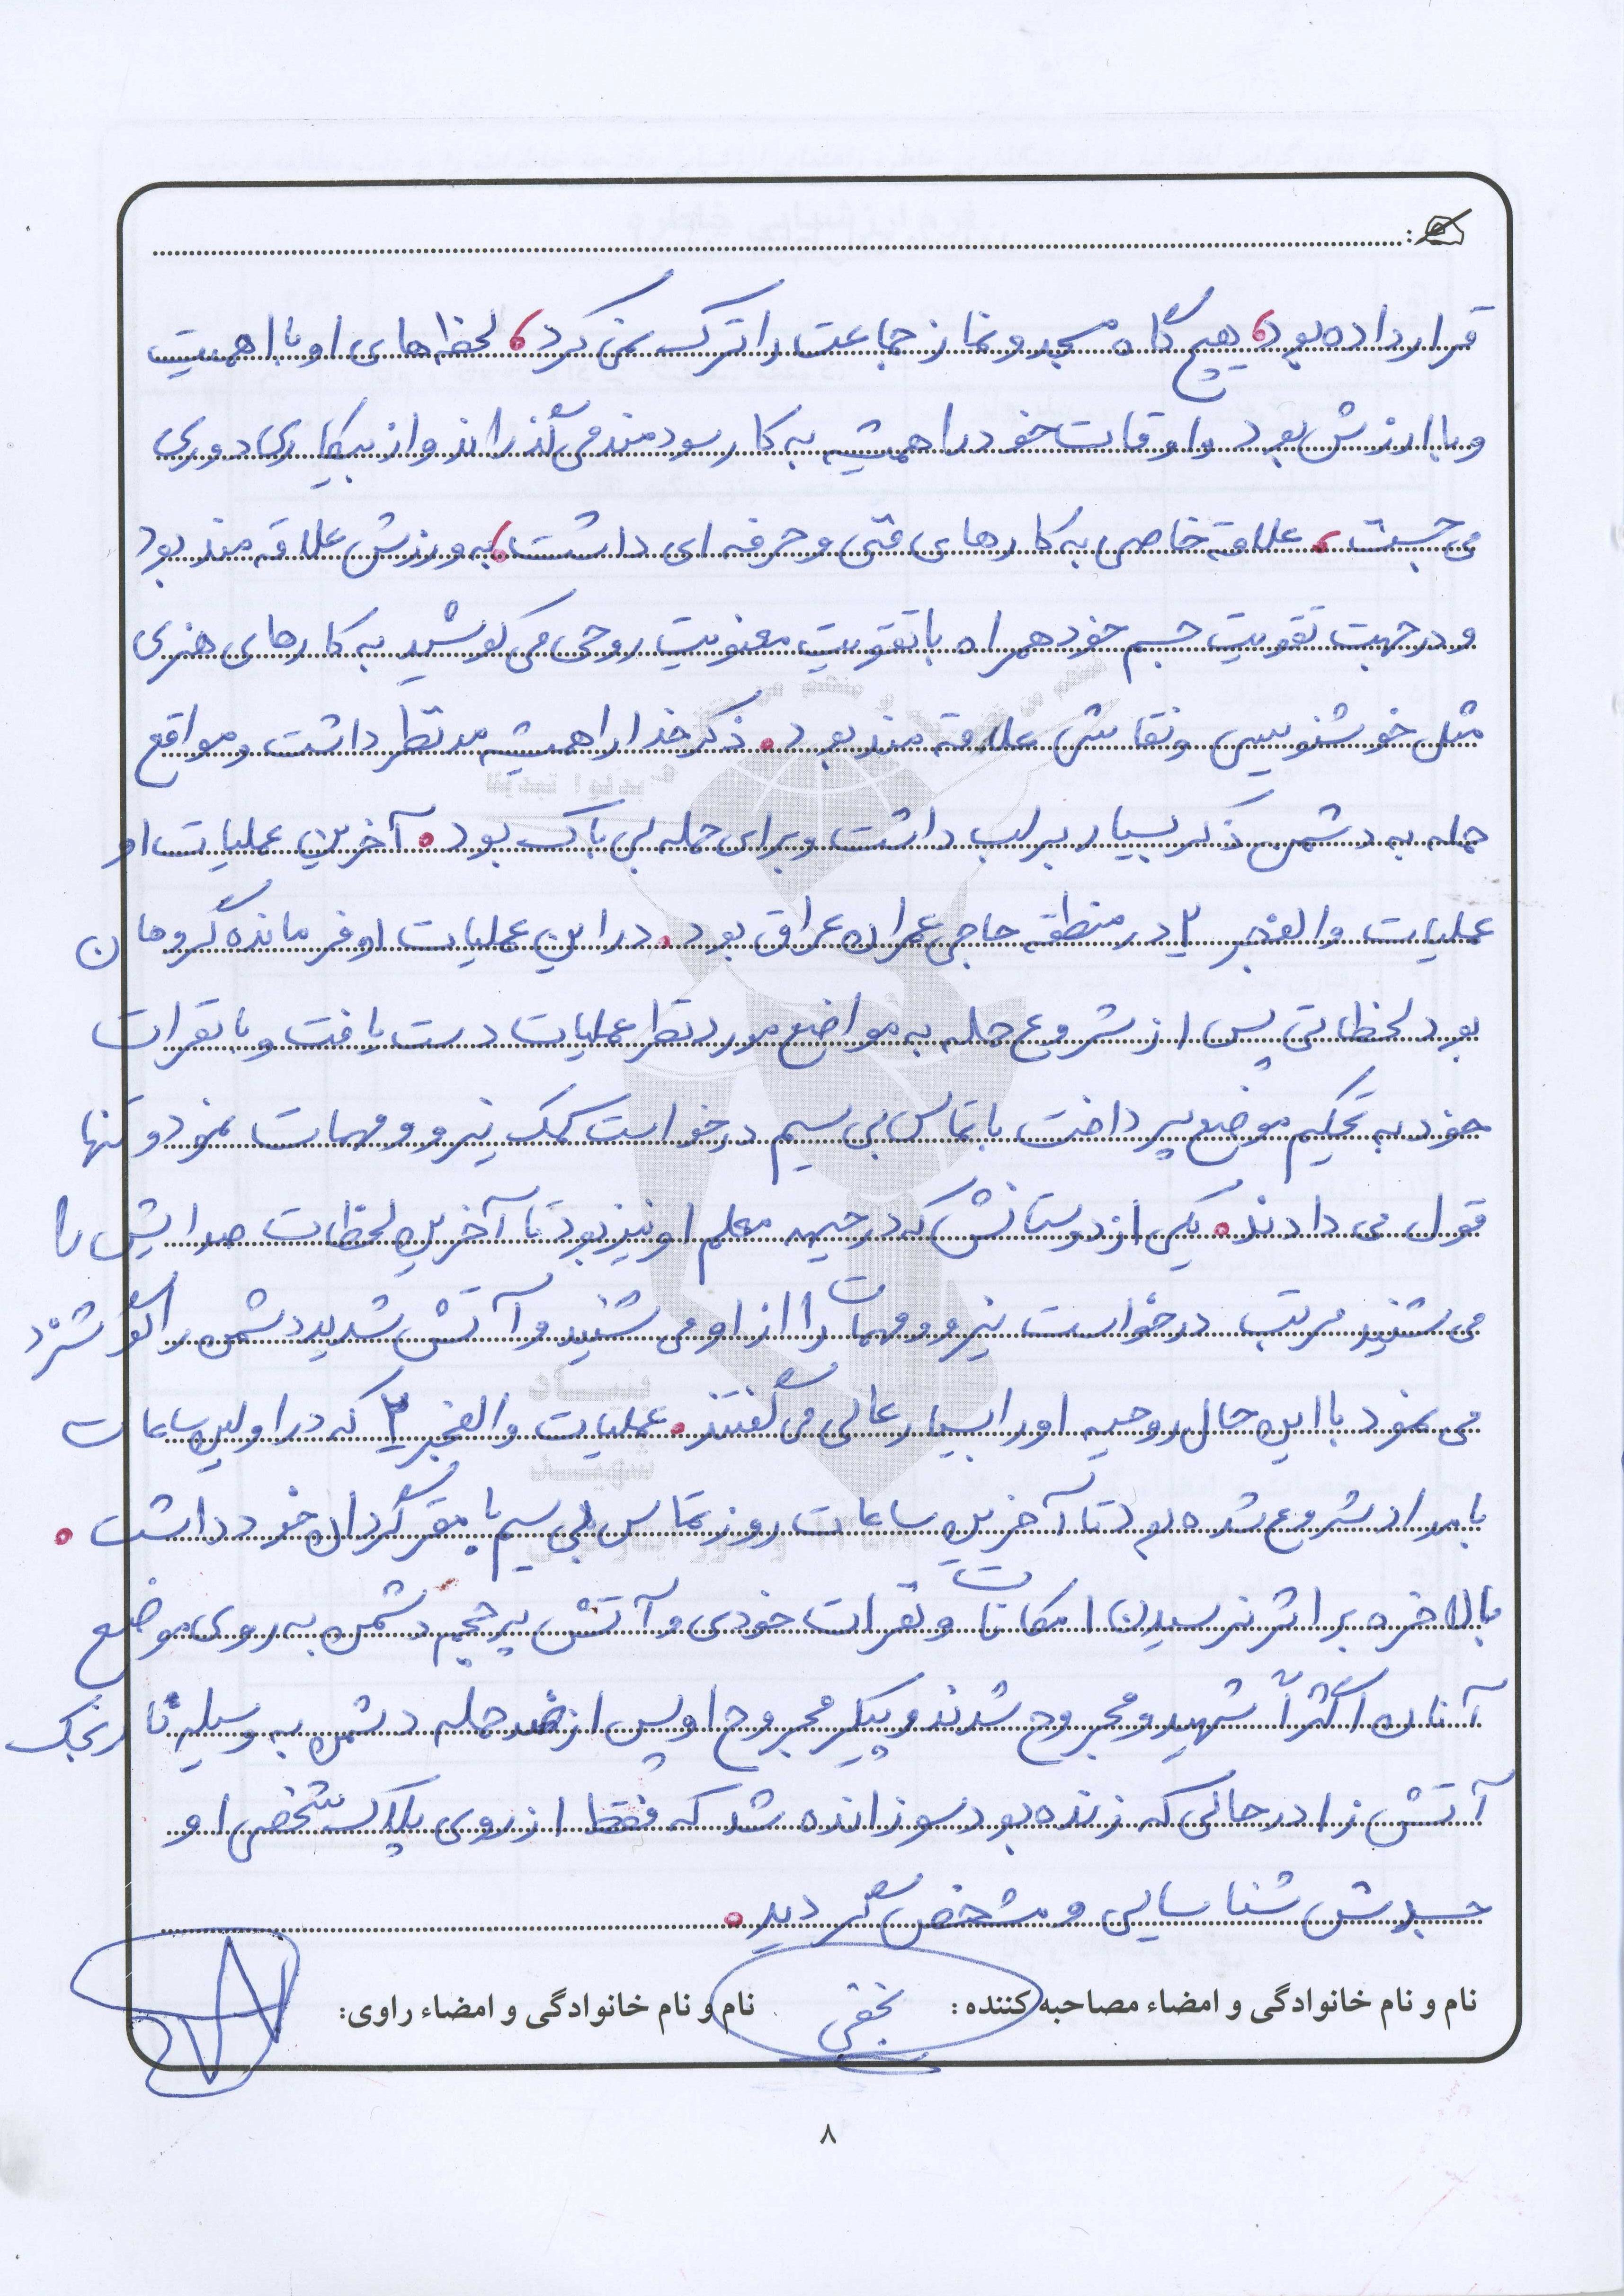 قرار داده بود، هیچ گاه مسجد و نماز جماعت را ترک نمی کرد، لحظه های او با اهمیت
و با ارزش بود و اوقات خود را همیشه به کار سودمند می گذراند و از بیکاری دوری
می جست، علاقه خاصی به کارهای فنی و حرفه ای داشت، به ورزش علاقه مند بود
و در جهت تقویت جسم خود همراه با تقویت معنویت روحی می کوشید به کارهای هنری
مثل خوشنویسی و نقاشی علاقه مند بود. ذکر خدا را همیشه مد نظر داشت و مواقع
حمله به دشمن ذکر بسیار بر لب داشت و برای حمله بی باک بود. آخرین عملیات او
عملیات والفجر ۲ در منطقه حاجی عمران عراق بود. در این عملیات او فرمانده گروهان
بود لحظاتی پس از شروع حمله به مواضع مورد نظر عملیات دست یافت و با نفرات
خود به تحکیم موضع پرداخت با تماس بی سیم درخواست کمک نیرو و مهمات نمود و تنها
قول می دادند. یکی از دوستانش که در جبهه معلم او نیز بود تا آخرین لحظات صدایش را
می شنید مرتب درخواست نیرو و مهمات را از او می شنید و آتش شدید دشمن را گوشزد
می نمود با این حال روحیه او را بسیار عالی می گفتند. عملیات والفجر ۲ که در اولین ساعات
بامداد شروع شده بود تا آخرین ساعات روز تماس بی سیم با مقر گردان خود داشت.
بالاخره بر اثر نرسیدن امکانات و نفرات خودی و آتش پر حجم دشمن به روی موضع
آنان اکثراً شهید و مجروح شدند و پیکر مجروح او پس از ضد حمله دشمن به وسیله نارنجک
آتش زا در حالی که زنده بود سوزانده شد که فقط از روی پلاک شخصی او و
جسدش شناسایی و مشخص گردید.
نام و نام خانوادگی و امضاء مصاحبه کننده: نجفی نام و نام خانوادگی و امضاء راوی:
۸